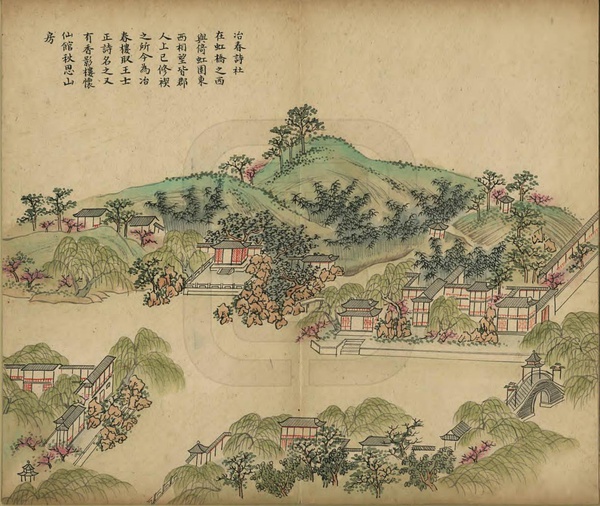 冶春詩社
在虹橋之西
與倚虹園東
西相望皆郡
人上巳修禊
之所今為冶
春樓取王士
正詩名之又
有香影樓懷
仙館秋思山
房